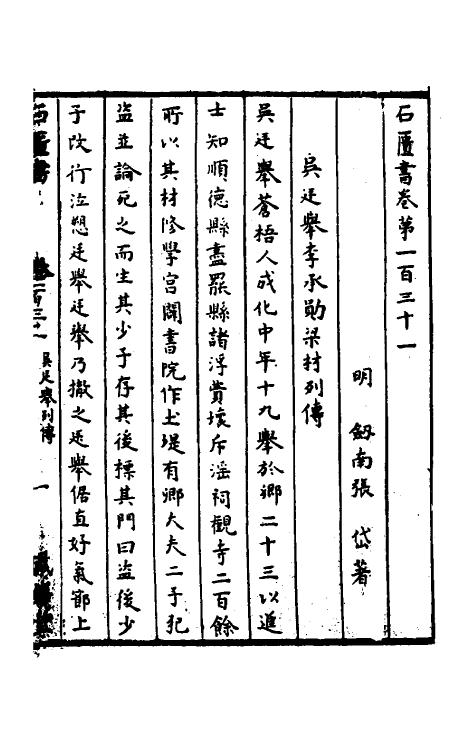 石匱書卷第一百三十一
明　劔南張　岱著
吳廷舉李承勛梁材列傳
吳廷舉蒼梧人成化中年十九舉於鄉二十三以進
士知順德縣盡罷縣諸浮費壞斥滛祠觀寺二百餘
所以其材修學宮闢書院作土堤有鄉大夫二子犯
盜並論死之而生其少子存其後標其門曰盜後少
子改行泣愬廷舉廷舉乃撤之廷舉倨直好氣節上
石匱書
卷一百三十一
吳廷舉列傳
一